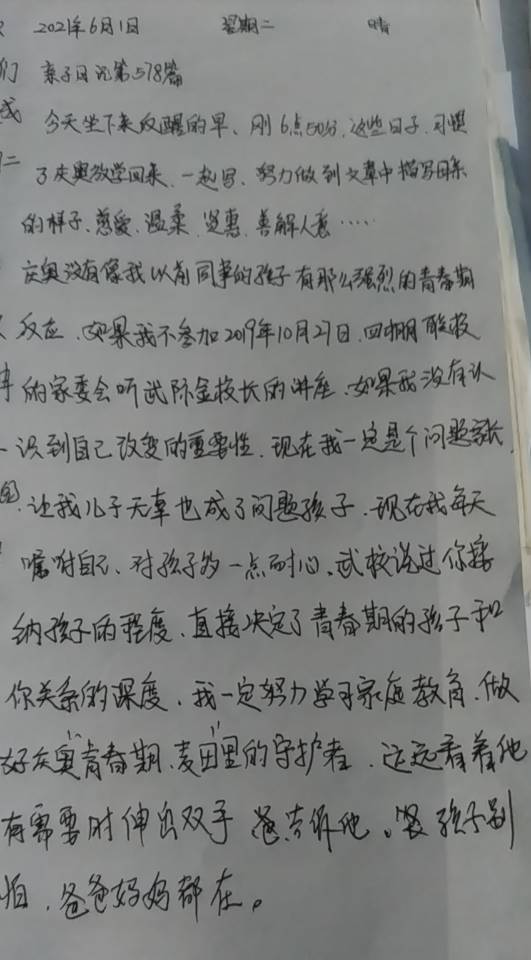 2021年6月1日 星期二 晴
亲子日记第578篇
今天坐下来反醒的早、刚6点50分,这些日子,习惯
了庆奥放学回来,一起写、努力做到文章中描写母亲
的样子、慈爱、温柔、贤惠、善解人意……
庆奥没有像我以前同事的孩子有那么强烈的青春期
反应,如果我不参加2019年10月27日,四棚
的家委会听武际金校长的讲座、如果我没有认
识到自己改变的重要性、现在我一定是个问题家长
让我儿子无辜也成了问题孩子、现在我每天
嘱咐自己、对孩子多一点耐心、武校说过你接
纳孩子的程度、直接决定了青春期的孩子和
你关系的深度、我一定努力学习家庭教育、做
好庆奥青春期"麦田里的守护者"远远看着他
有需要时伸出双手 告诉他。孩子别
怕、爸爸妈妈都在。